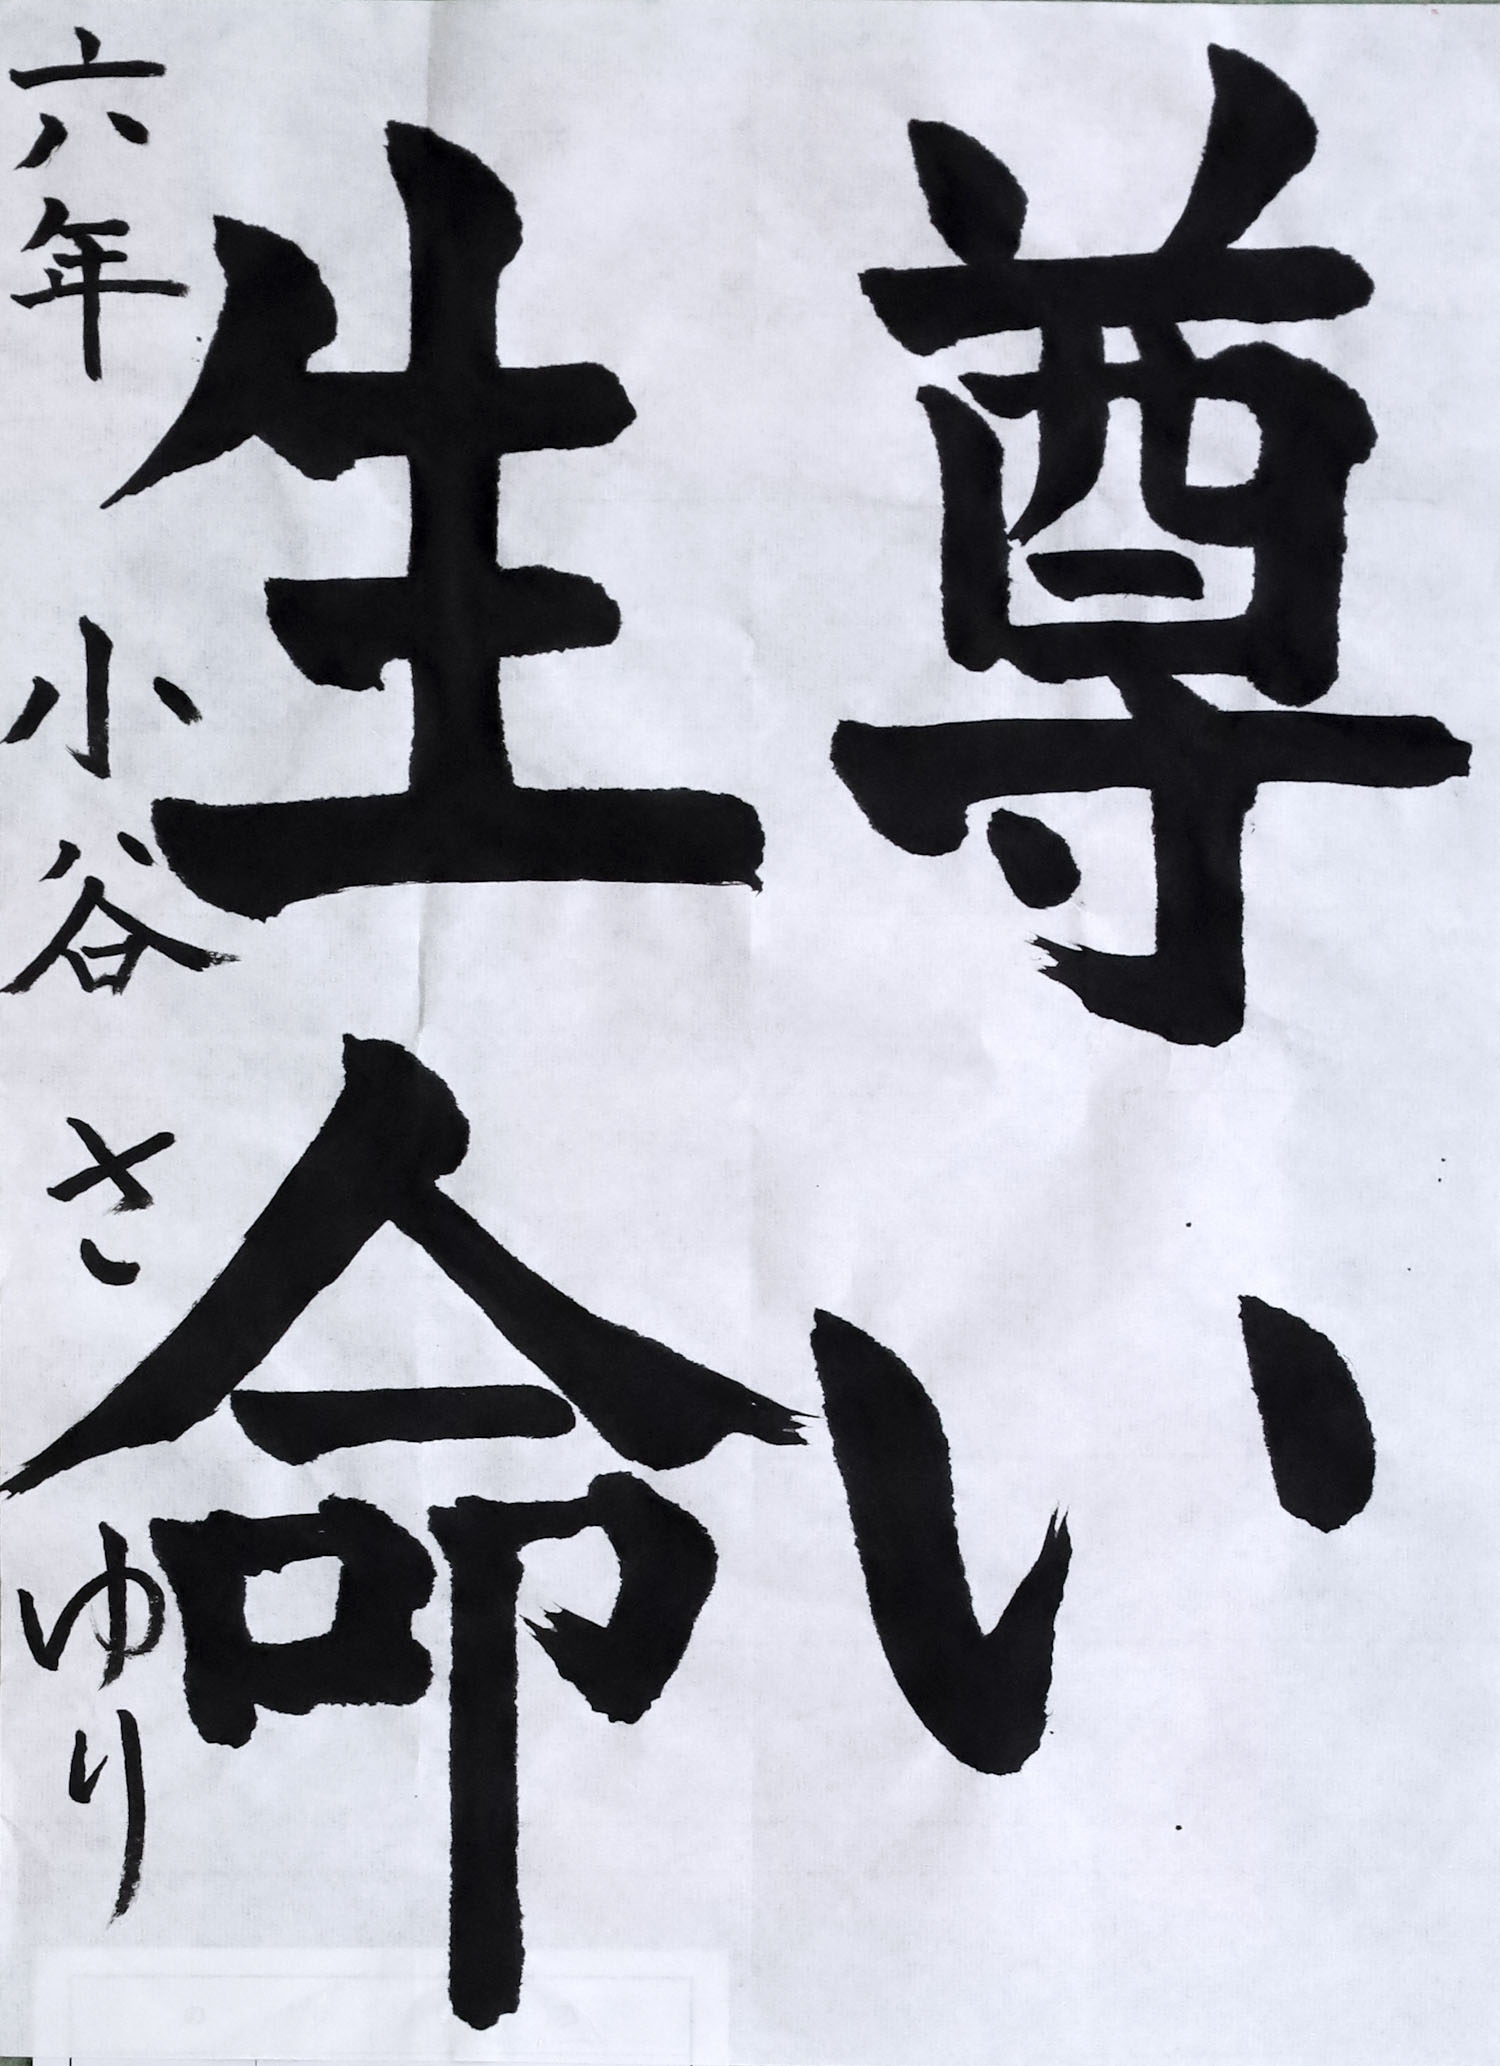 尊い
生命
六年 小谷 さゆり